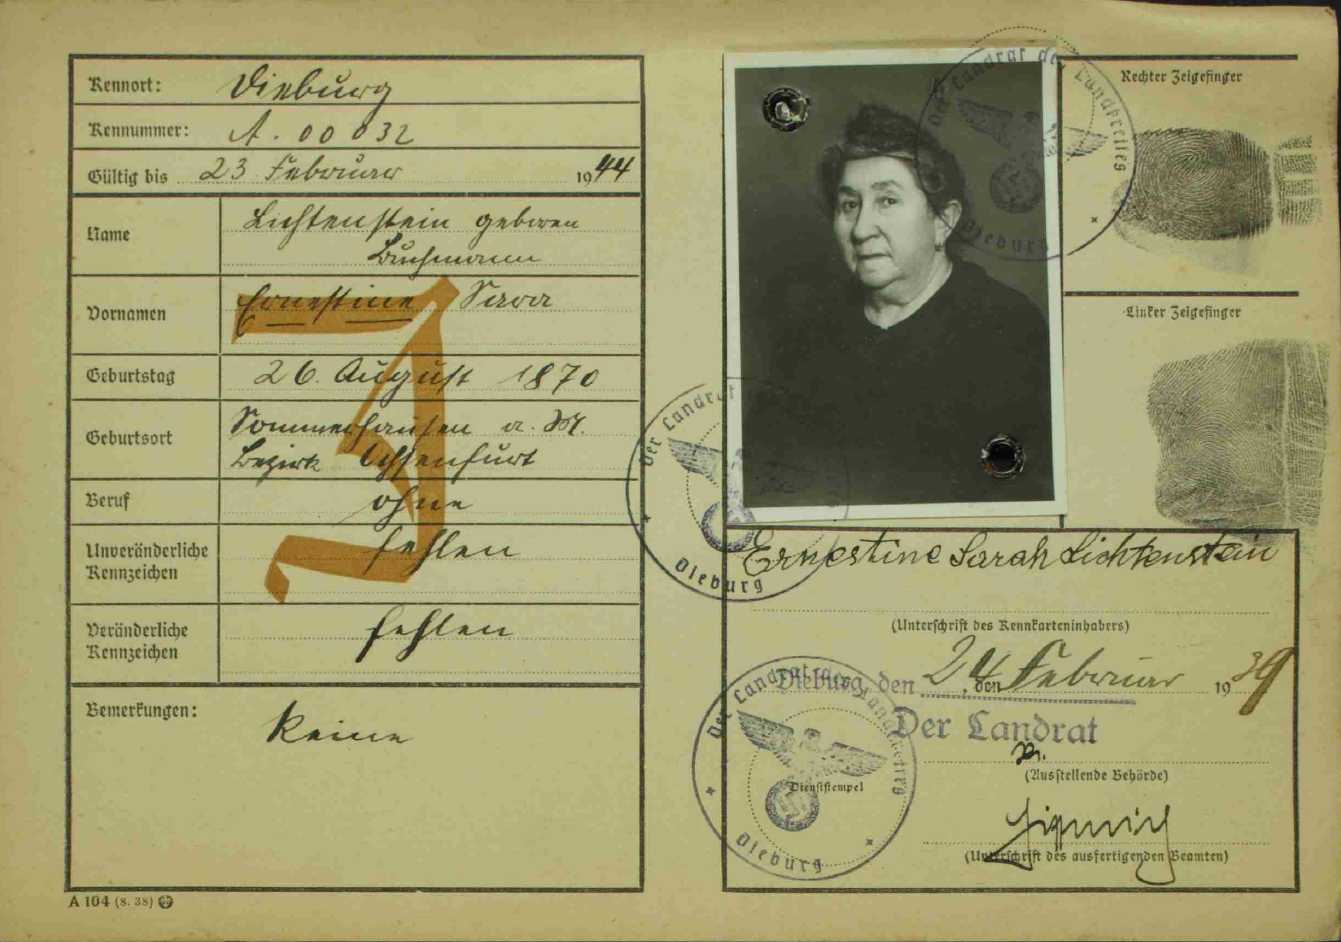 Kennort: Dieburg
Kennummer: A. 00032
Gültig bis 23 Februar 1944
Name Lichtenstein geboren
Buchmann
Vornamen Ernestine Sara
Geburtstag 26. August 1870
Geburtsort Sommerhausen a. M.
Bezirk Ochsenfurt
Beruf ohne
Unveränderliche
Kennzeichen fehlen
Veränderliche
Kennzeichen fehlen
Bemerkungen: Keine
A 104 (8. 38)
J
Rechter Zeigefinger
Linker Zeigefinger
Der Landrat des Landkreises
Dieburg
Der Landrat
Dieburg
Ernestine Sarah Lichtenstein
(Unterschrift des Kennkarteninhabers)
Dieburg den 24 Februar 1939
, den
Der Landrat
(Ausstellende Behörde)
Der Landrat des Landkreises
Dienststempel
Dieburg
(Unterschrift des ausfertigenden Beamten)